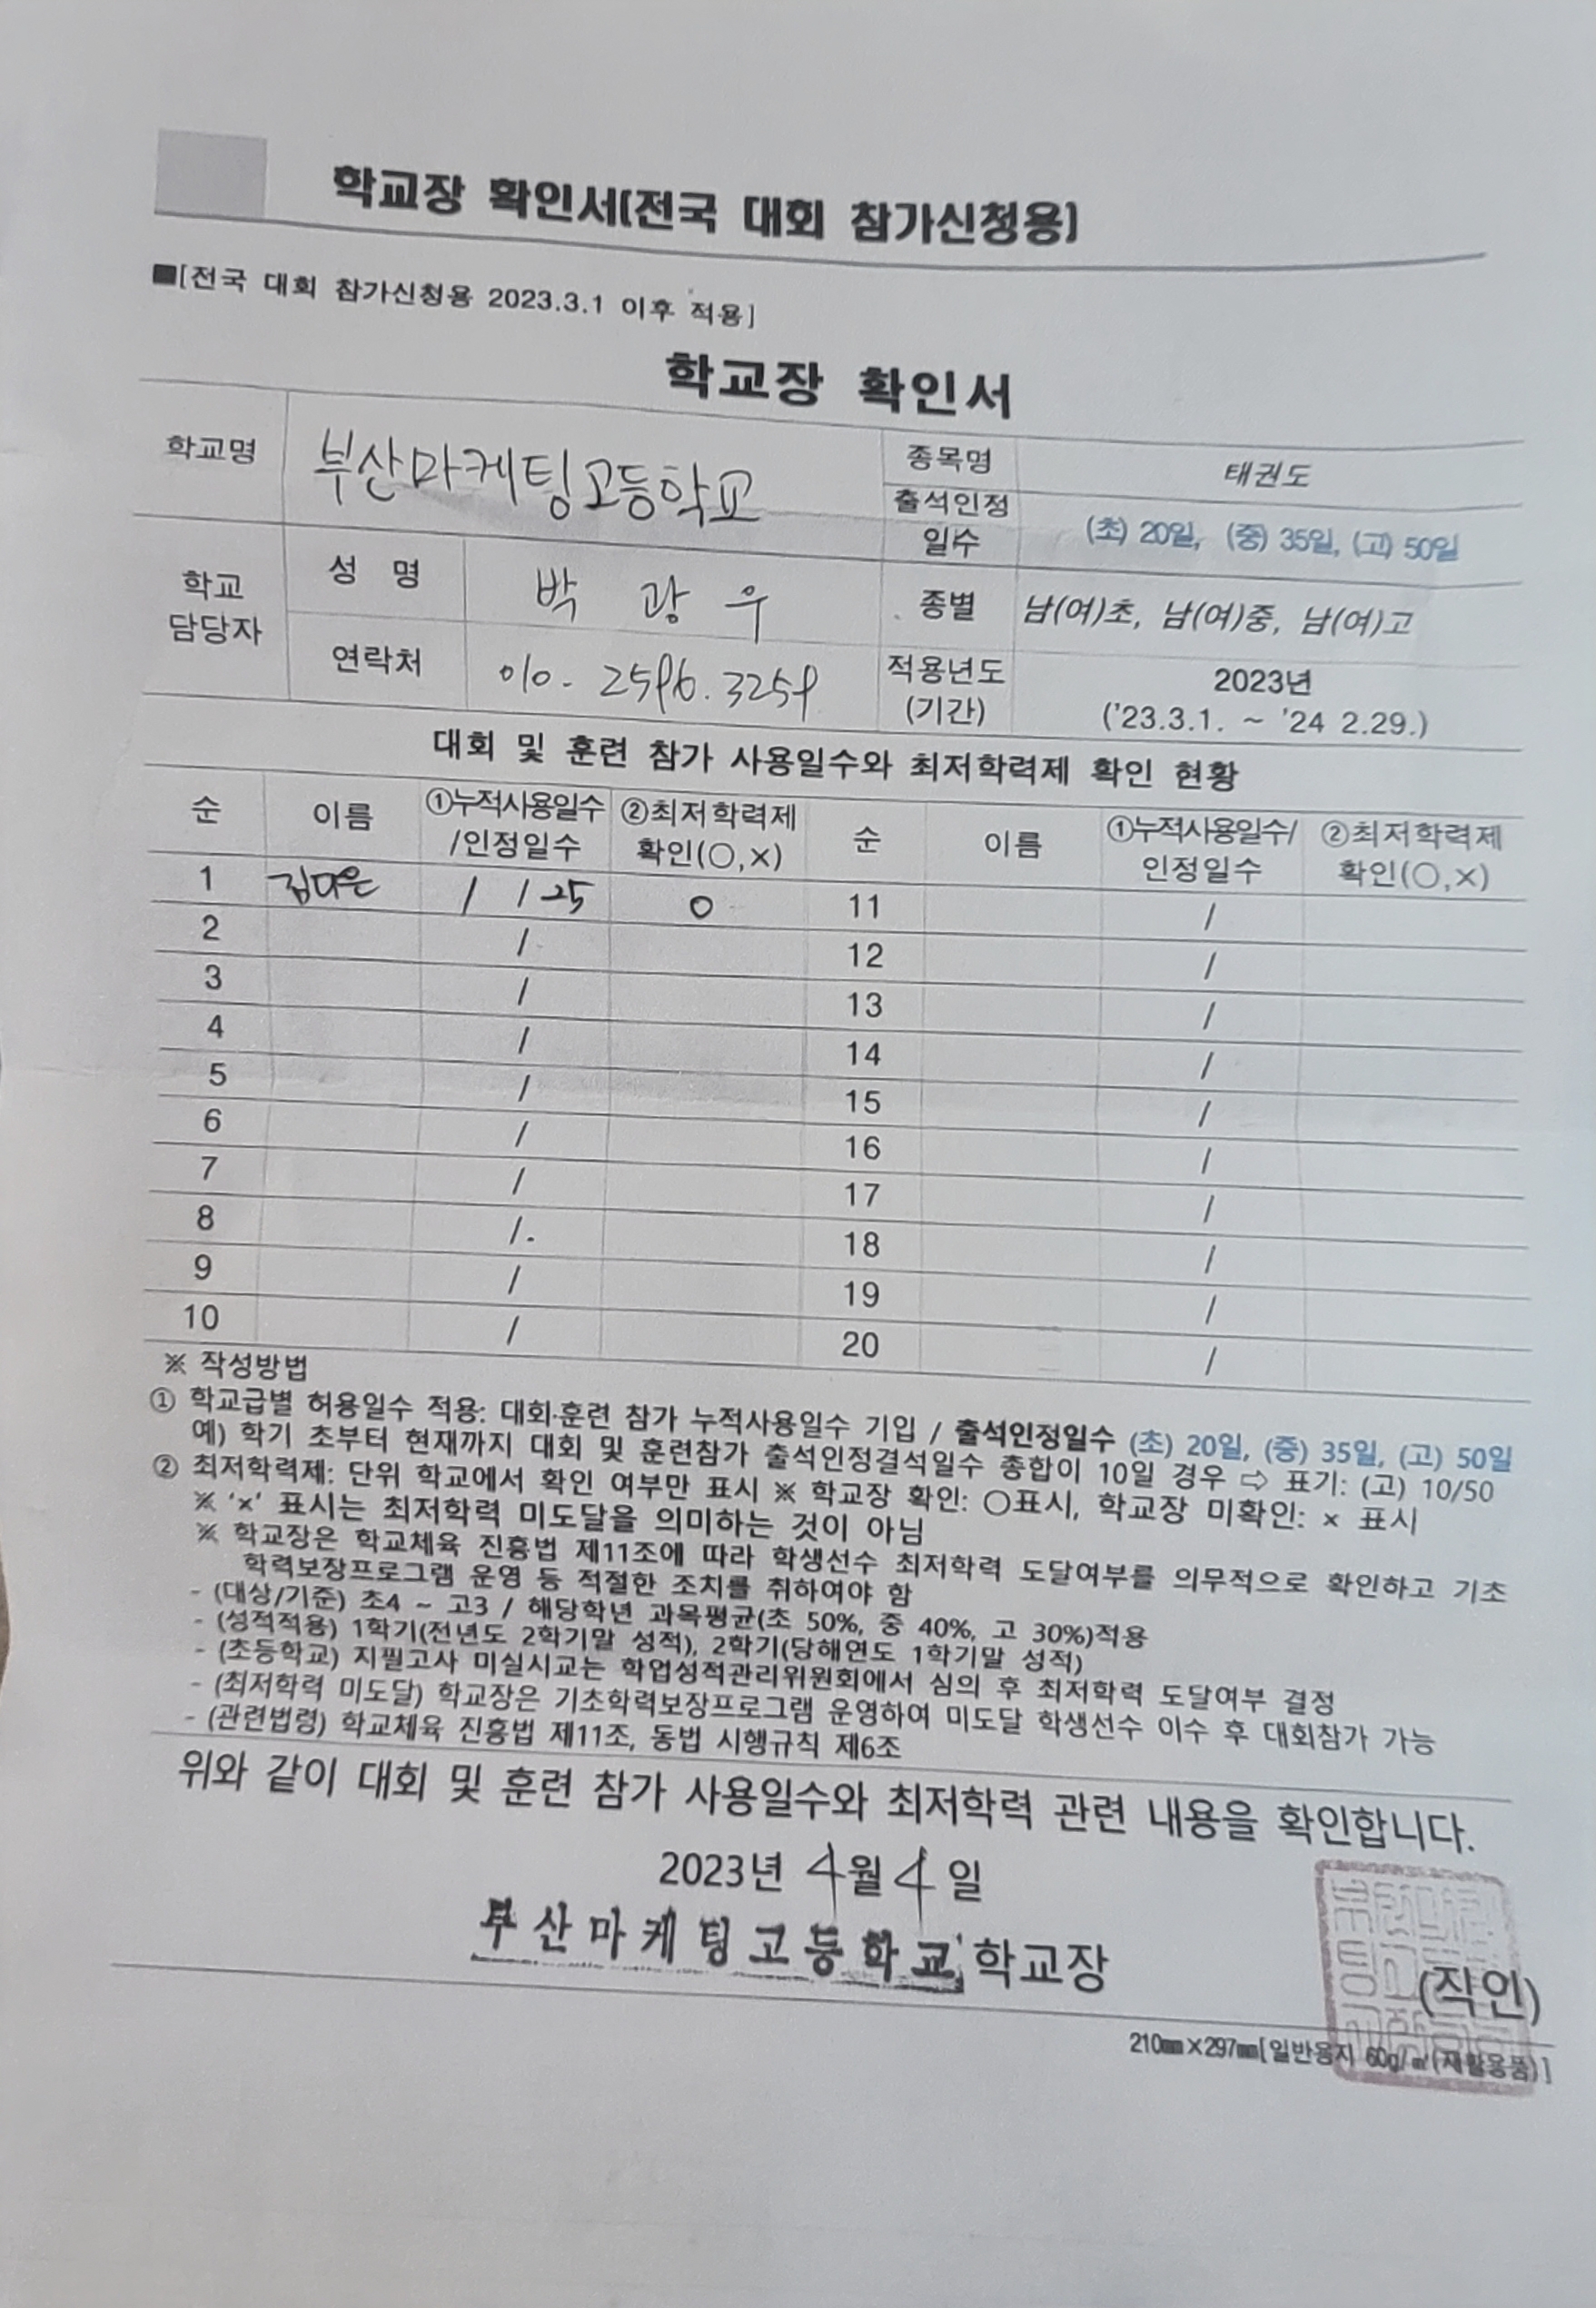 학교장 확인서[전국 대회 참가신청용]
■[전국 대회 참가신청용 2023.3.1 이후 적용]
학교장 확인서
학교명 부산마케팅고등학교 종목명 태권도
출석인정 일수 (초) 20일, (중) 35일, (고) 50일
학교 담당자 성 명 박 광 우 종별 남(여)초, 남(여)중, 남(여)고
연락처 010-2596.3259 적용년도 (기간) 2023년 ('23.3.1. ~ '24 2.29.)
대회 및 훈련 참가 사용일수와 최저학력제 확인 현황
순 이름 ①누적사용일수 /인정일수 ②최저학력제 확인(○,×) 순 이름 ①누적사용일수/ 인정일수 ②최저학력제 확인(○,×)
1 김다은 1 / 25 ○ 11 /
2 / 12 /
3 / 13 /
4 / 14 /
5 / 15 /
6 / 16 /
7 / 17 /
8 / 18 /
9 / 19 /
10 / 20 /
※ 작성방법
① 학교급별 허용일수 적용: 대회·훈련 참가 누적사용일수 기입 / 출석인정일수 (초) 20일, (중) 35일, (고) 50일
예) 학기 초부터 현재까지 대회 및 훈련참가 출석인정결석일수 종합이 10일 경우 ⇨ 표기: (고) 10/50
② 최저학력제: 단위 학교에서 확인 여부만 표시 ※ 학교장 확인: ○표시, 학교장 미확인: × 표시
※ '×' 표시는 최저학력 미도달을 의미하는 것이 아님
※ 학교장은 학교체육 진흥법 제11조에 따라 학생선수 최저학력 도달여부를 의무적으로 확인하고 기초
학력보장프로그램 운영 등 적절한 조치를 취하여야 함
- (대상/기준) 초4 ~ 고3 / 해당학년 과목평균(초 50%, 중 40%, 고 30%)적용
- (성적적용) 1학기(전년도 2학기말 성적), 2학기(당해연도 1학기말 성적)
- (초등학교) 지필고사 미실시교는 학업성적관리위원회에서 심의 후 최저학력 도달여부 결정
- (최저학력 미도달) 학교장은 기초학력보장프로그램 운영하여 미도달 학생선수 이수 후 대회참가 가능
- (관련법령) 학교체육 진흥법 제11조, 동법 시행규칙 제6조
위와 같이 대회 및 훈련 참가 사용일수와 최저학력 관련 내용을 확인합니다.
2023년 4월 4일
부산마케팅고등학교 학교장
(직인)
210㎜×297㎜[일반용지 60g/㎡(재활용품)]